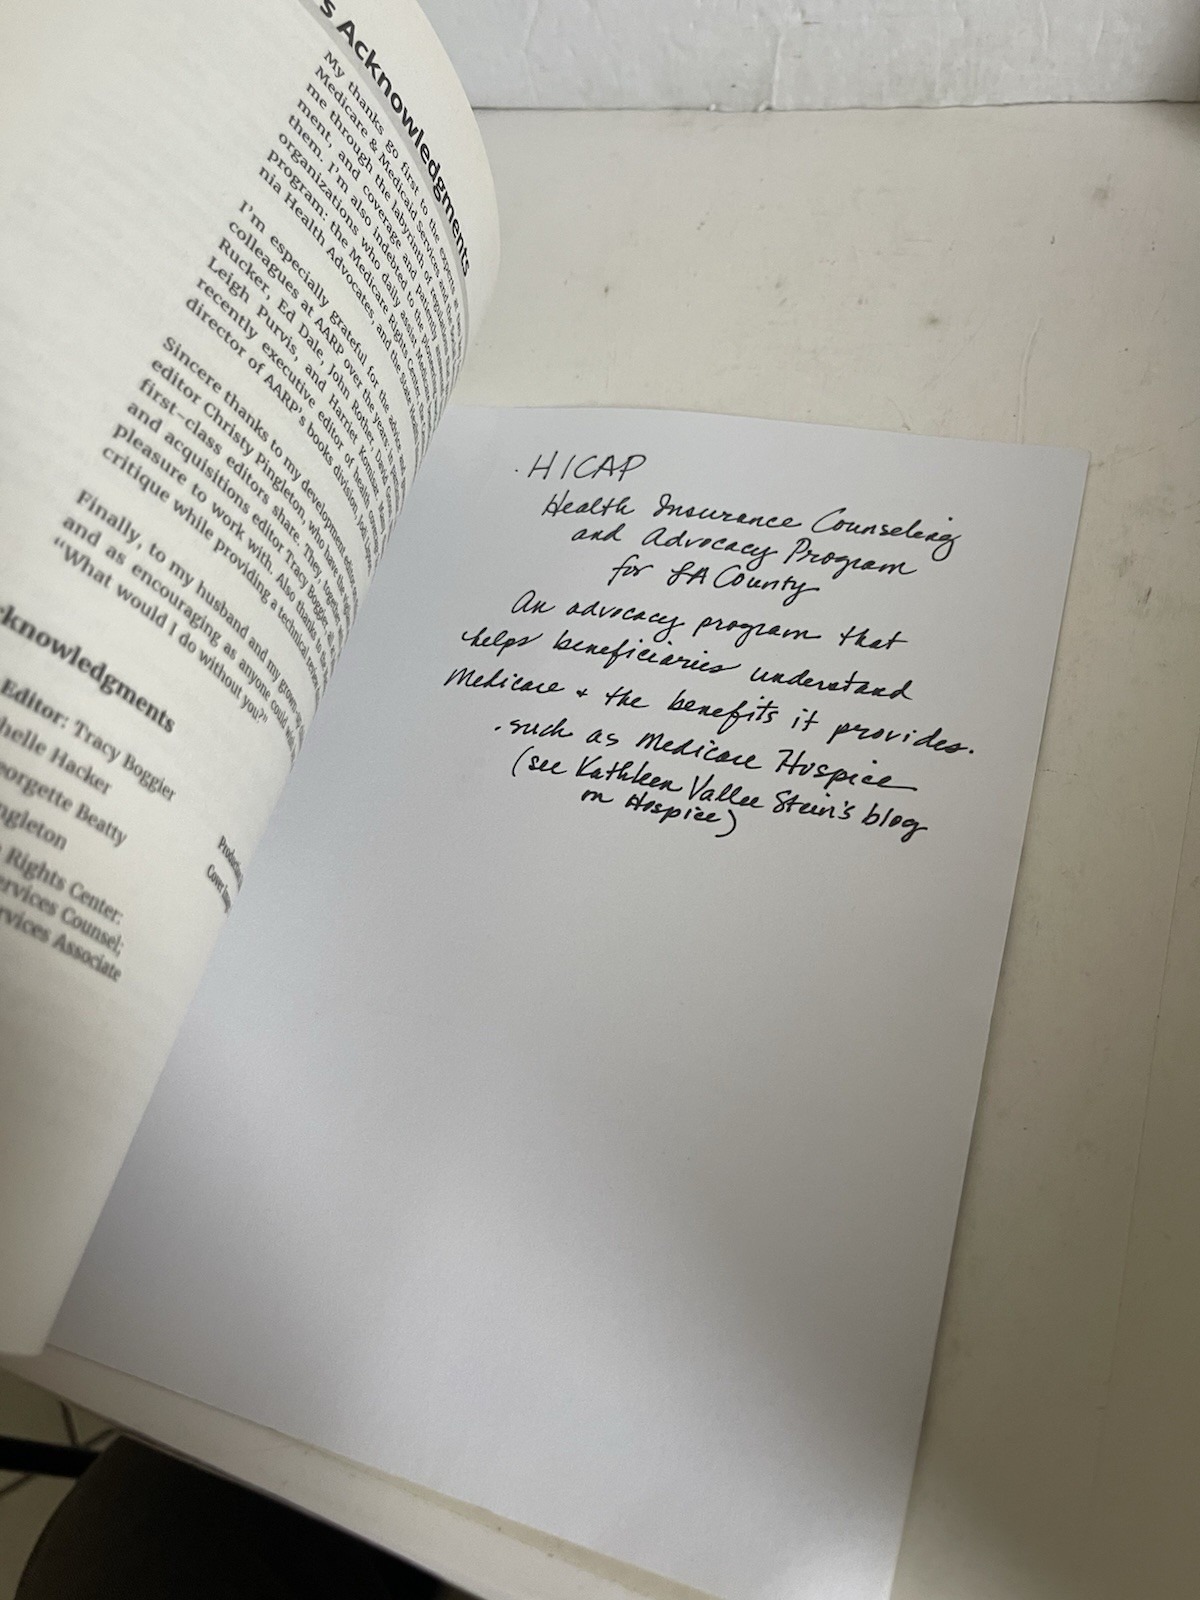 s Acknowledgments
My thanks go first to the experts
Medicare & Medicaid Services and the
me through the labyrinth of
ment, and coverage and patiently
them. I'm also indebted to the
organizations who daily assist
program: the Medicare Rights Center
nia Health Advocates, and the State Health
I'm especially grateful for the advice and
colleagues at AARP over the years: in
Rucker, Ed Dale, John Rother, David
Leigh Purvis, and Harriet Komisar.
recently executive editor of health
director of AARP's books division, Jodi
Sincere thanks to my development editor
editor Christy Pingleton, who have the
first-class editors share. They, together
and acquisitions editor Tracy Boggier, all
pleasure to work with. Also thanks to the
critique while providing a technical review
Finally, to my husband and my grown-
and as encouraging as anyone could
"What would I do without you?"
cknowledgments
Editor: Tracy Boggier
helle Hacker
eorgette Beatty
ngleton
Rights Center:
ervices Counsel;
rvices Associate
Production
Cover
HICAP
Health Insurance Counseling
and Advocacy Program
for LA County
An advocacy program that
helps beneficiaries understand
Medicare + the benefits it provides.
. such as Medicare Hospice
(see Kathleen Vallee Stein's blog
on Hospice)